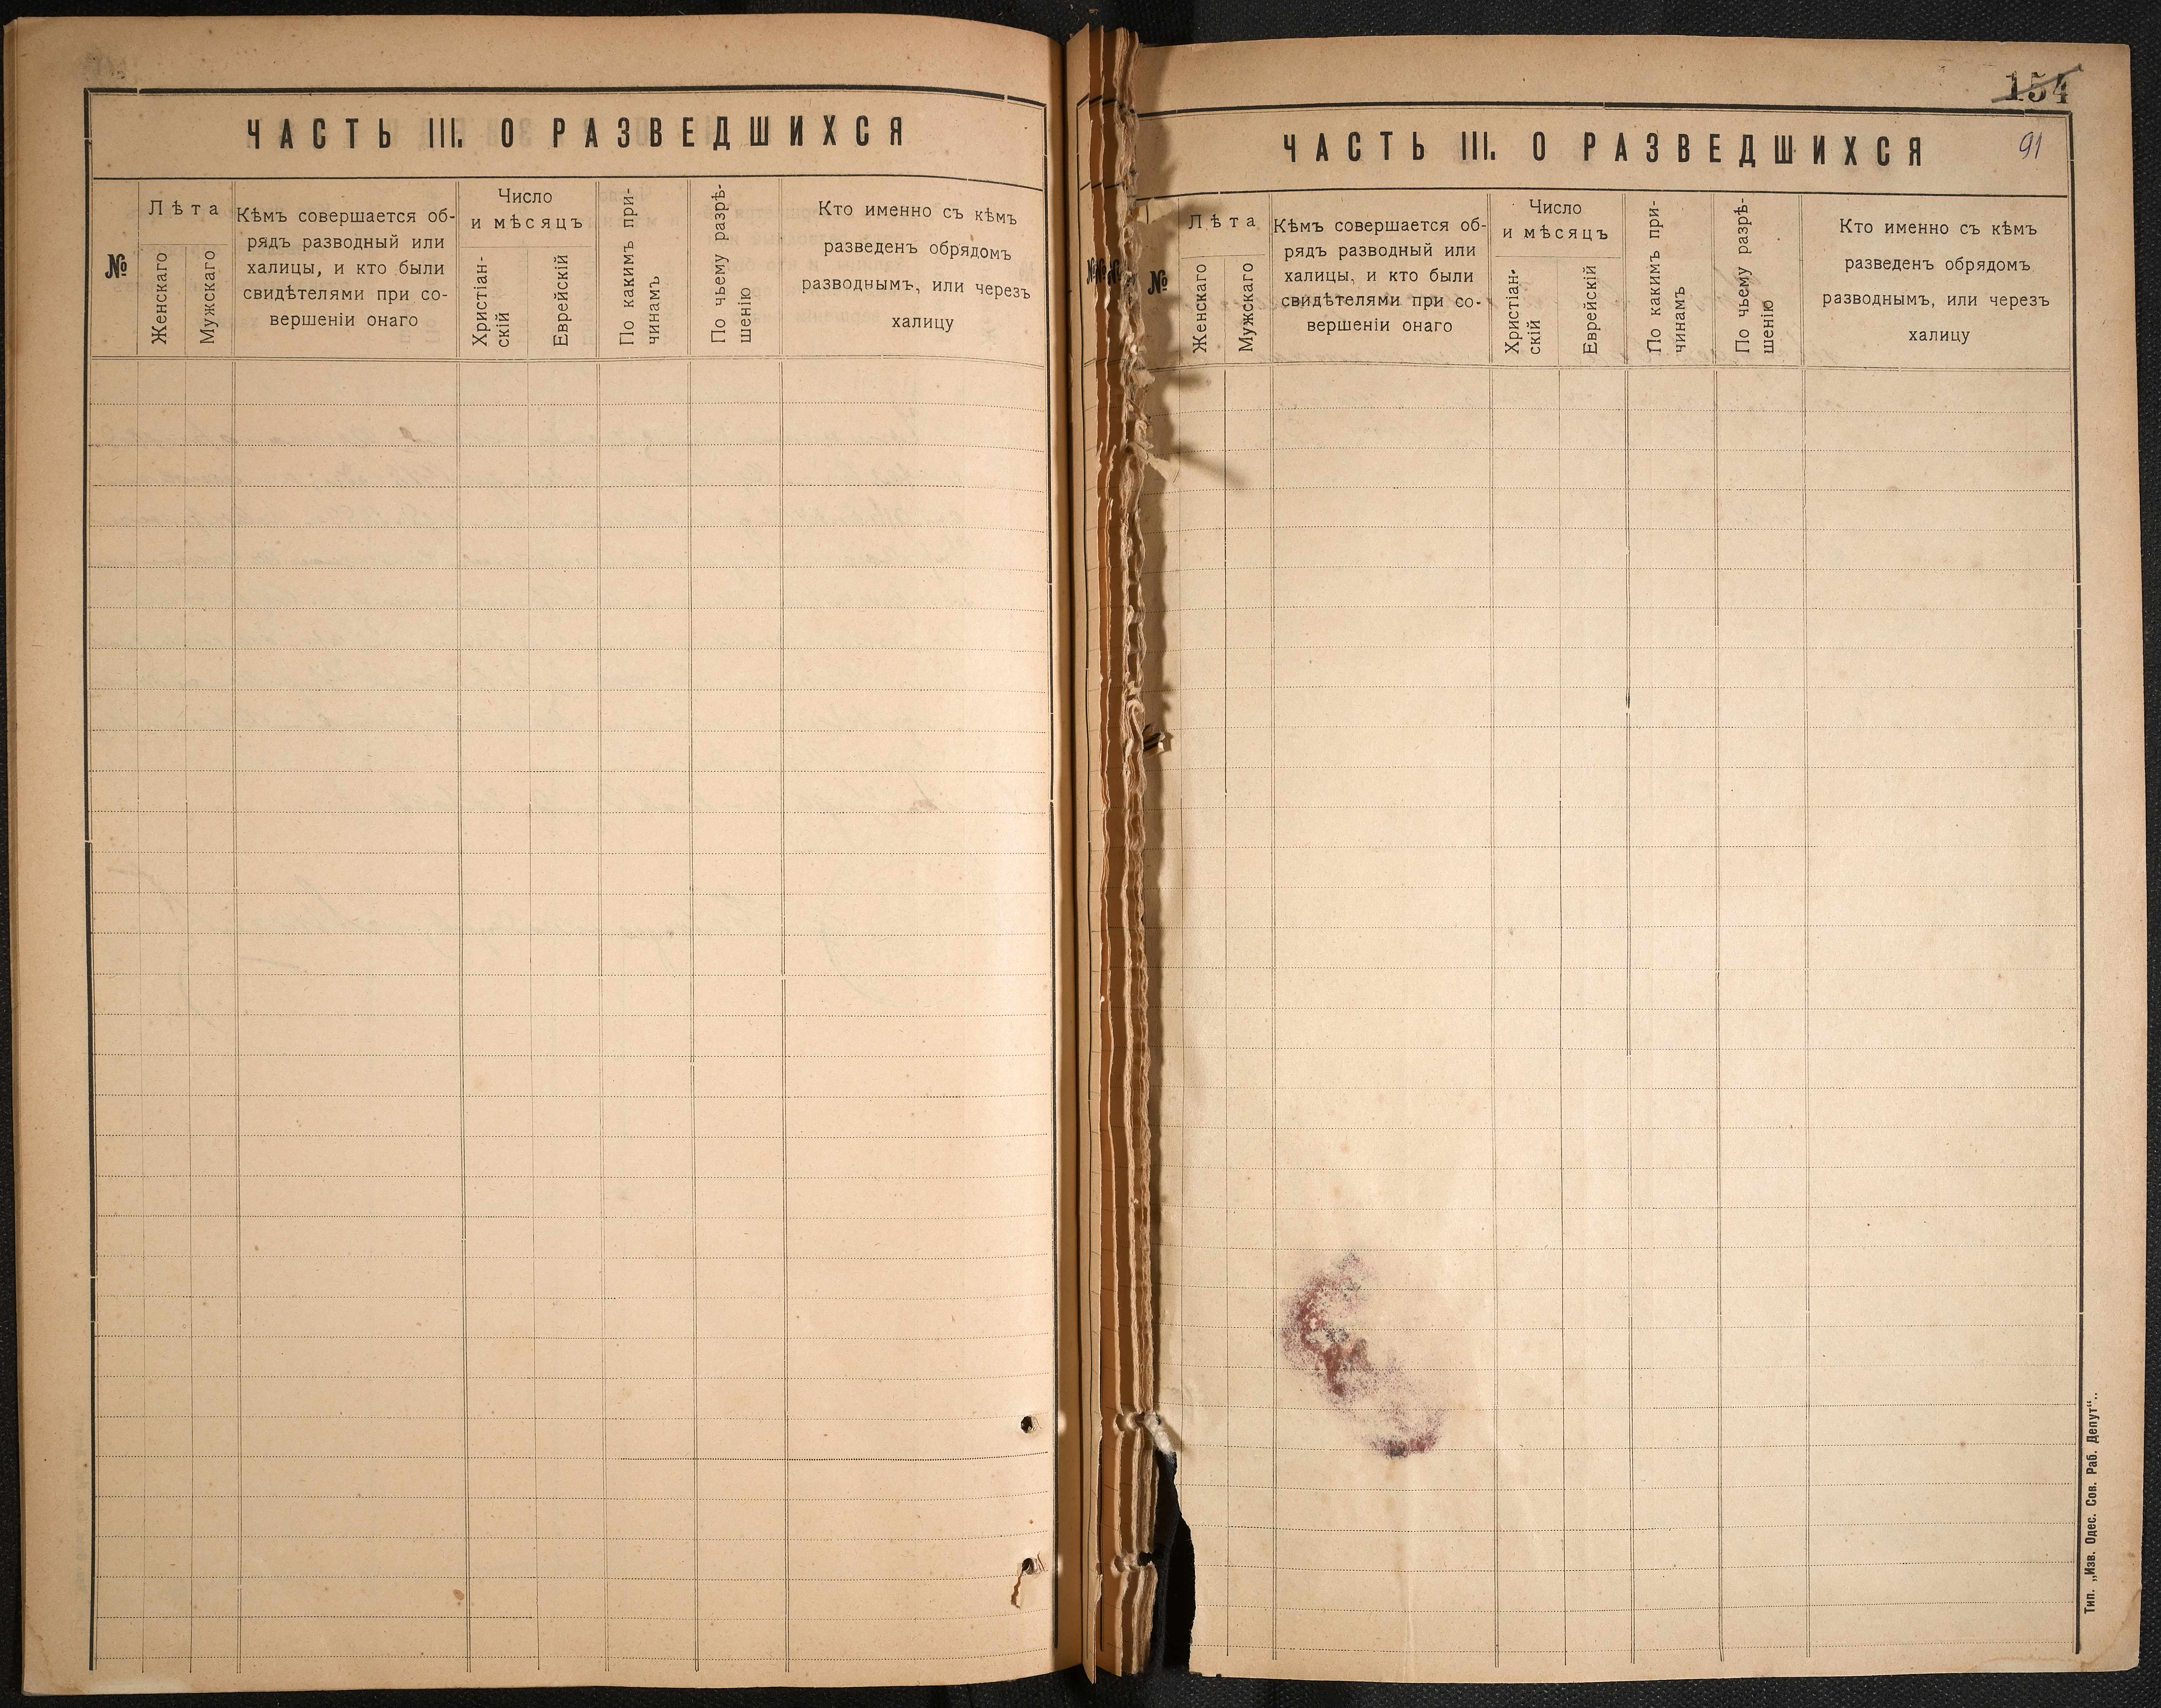 ЧАСТЬ III. О РАЗВЕДШИХСЯ
№
Лѣта
Женскаго
Мужскаго
Кѣмъ совершается об-
рядъ разводный или
халицы, и кто были
свидѣтелями при со-
вершеніи онаго
Число
и мѣсяцъ
Христіан-
скій
Еврейскій
По какимъ при-
чинамъ
По чьему разрѣ-
шенію
Кто именно съ кѣмъ
разведенъ обрядомъ
разводнымъ, или черезъ
халицу
154
ЧАСТЬ III. О РАЗВЕДШИХСЯ
91
№
Лѣта
Женскаго
Мужскаго
Кѣмъ совершается об-
рядъ разводный или
халицы, и кто были
свидѣтелями при со-
вершеніи онаго
Число
и мѣсяцъ
Христіан-
скій
Еврейскій
По какимъ при-
чинамъ
По чьему разрѣ-
шенію
Кто именно съ кѣмъ
разведенъ обрядомъ
разводнымъ, или черезъ
халицу
Тип. „Изв. Одес. Сов. Раб. Депут“..